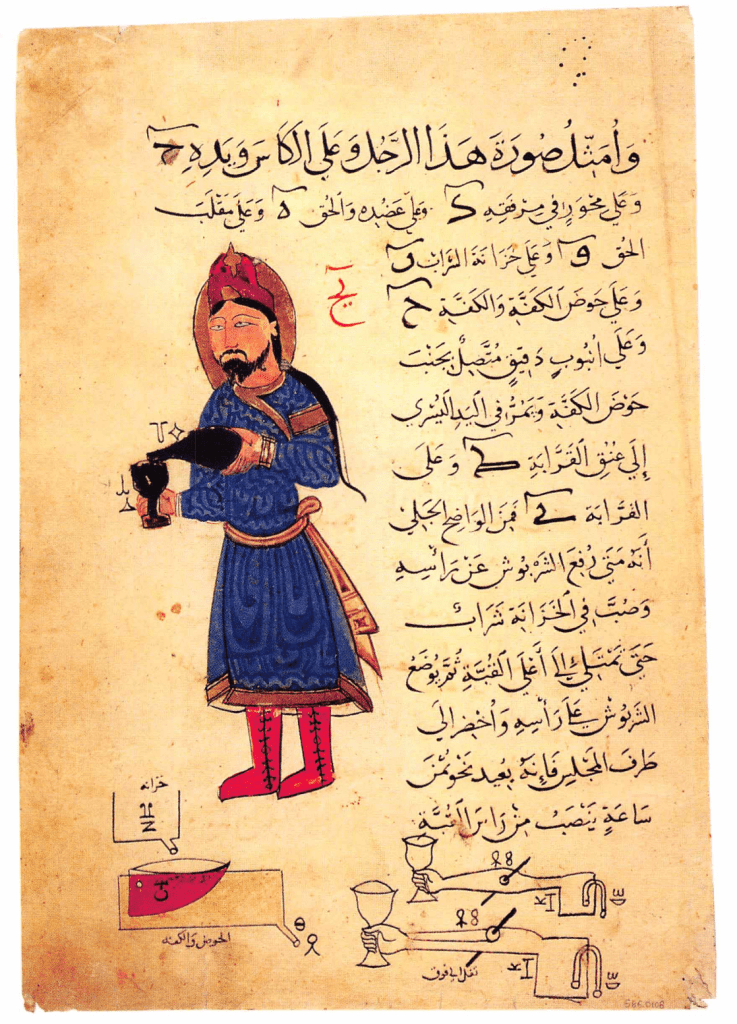 وَأُمَثِّلُ صُورَةَ هَذَا الرَّجُلِ وَعَلَى الْكَاسِ وَيَدِهِ ح
وَعَلَى مِحْوَرٍ فِي مِرْفَقِهِ وَعَلَى عَضُدِهِ وَالْحُقّ ه وَعَلَى مَقْلَبِ
الْحُقّ و وَعَلَى خِزَانَةِ الشَّرَابِ
وَعَلَى حَوْضِ الْكَفَّةِ وَالْكَفَّةِ ح
وَعَلَى أُنْبُوبٍ دَقِيقٍ مُتَّصِلٍ بِجَنْبِ
حَوْضِ الْكَفَّةِ وَيَمُرُّ فِي الْيَدِ الْيُسْرَى
إِلَى عُنُقِ الْقَرَّابَةِ وَعَلَى
الْقَرَّابَةِ فَمِنَ الْوَاضِحِ الْجَلِيّ
أَنَّهُ مَتَى رُفِعَ الشَّرْبُوش عَنْ رَأْسِهِ
وَصُبَّ فِي الْخِزَانَةِ شَرَابٌ
حَتَّى تَمْتَلِئَ إِلَى أَعْلَى الْقُبَّةِ ثُمَّ يُوضَعُ
الشَّرْبُوش عَلَى رَأْسِهِ وَأُحْضِرَ إِلَى
طَرَفِ الْمَجْلِسِ فَإِنَّهُ بُعَيْدَ نَحْوِ ثُمْنِ
سَاعَةٍ يَنْصَبُّ مِنْ
خزانه
الحوض والكفه
ثقل الى فوق